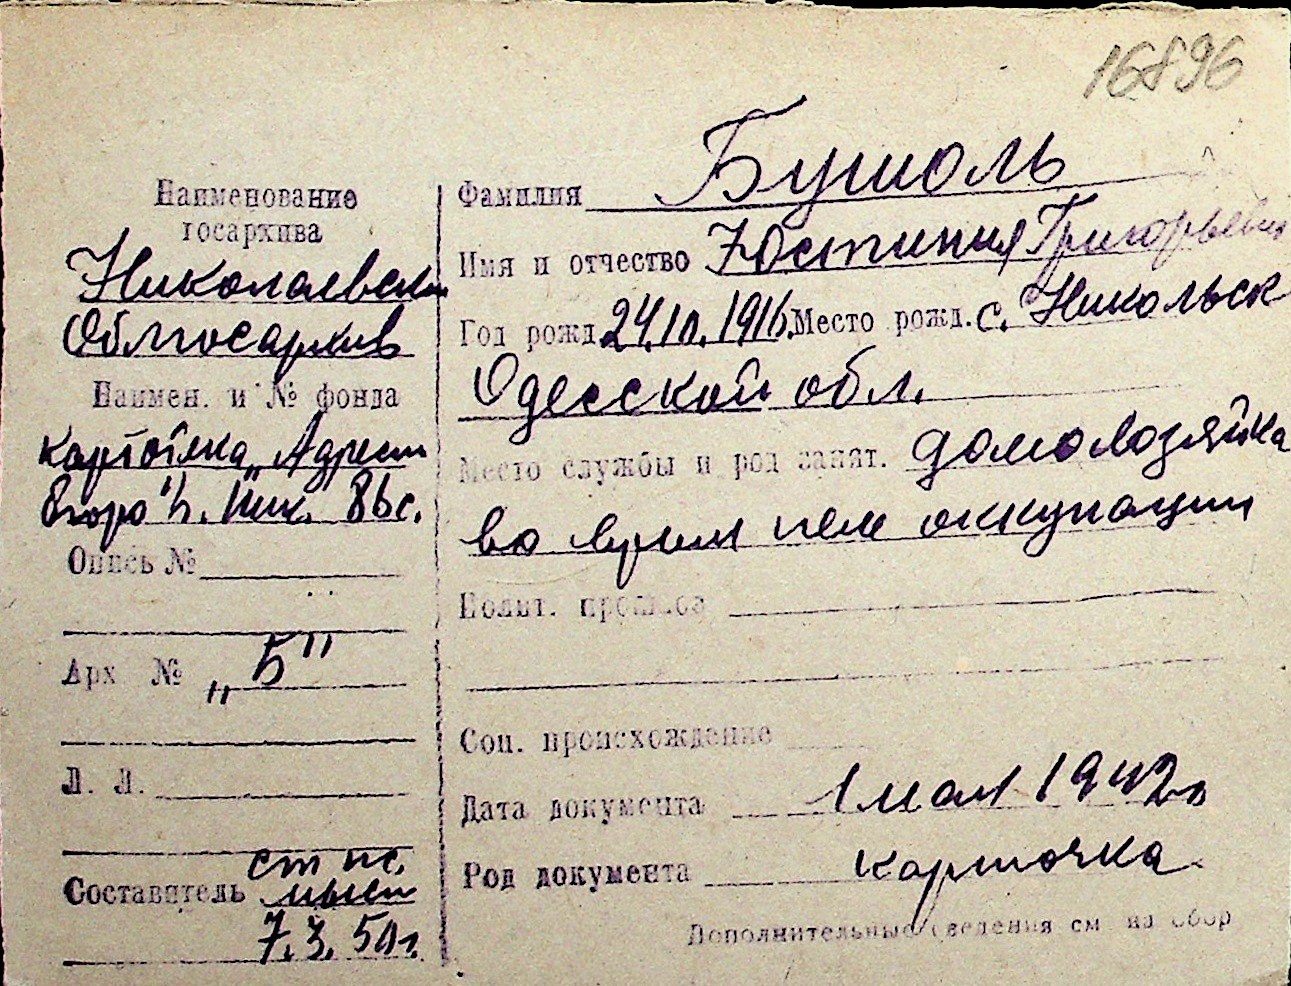 16896
Наименование
госархива
Николаевский
Облгосархив
Наимен. и № фонда
картотека „Адресн
бюро" г. Ник.
Опись №
Арх №
„Б"
Л. Л.
Составитель ст нс.
7.3.50г.
Фамилия Бушоль
Имя и отчество Юстиния Григорьевна
Год рожд. 24.10.1916. Место рожд. с. Никольск
Одесской обл.
Место службы и род занят. домохозяйка
во время нем оккупации
Полит. прошлоа
Соц. происхождение
Дата документа 1 мая 1942г
Род документа карточка
Дополнительные сведения см на обор